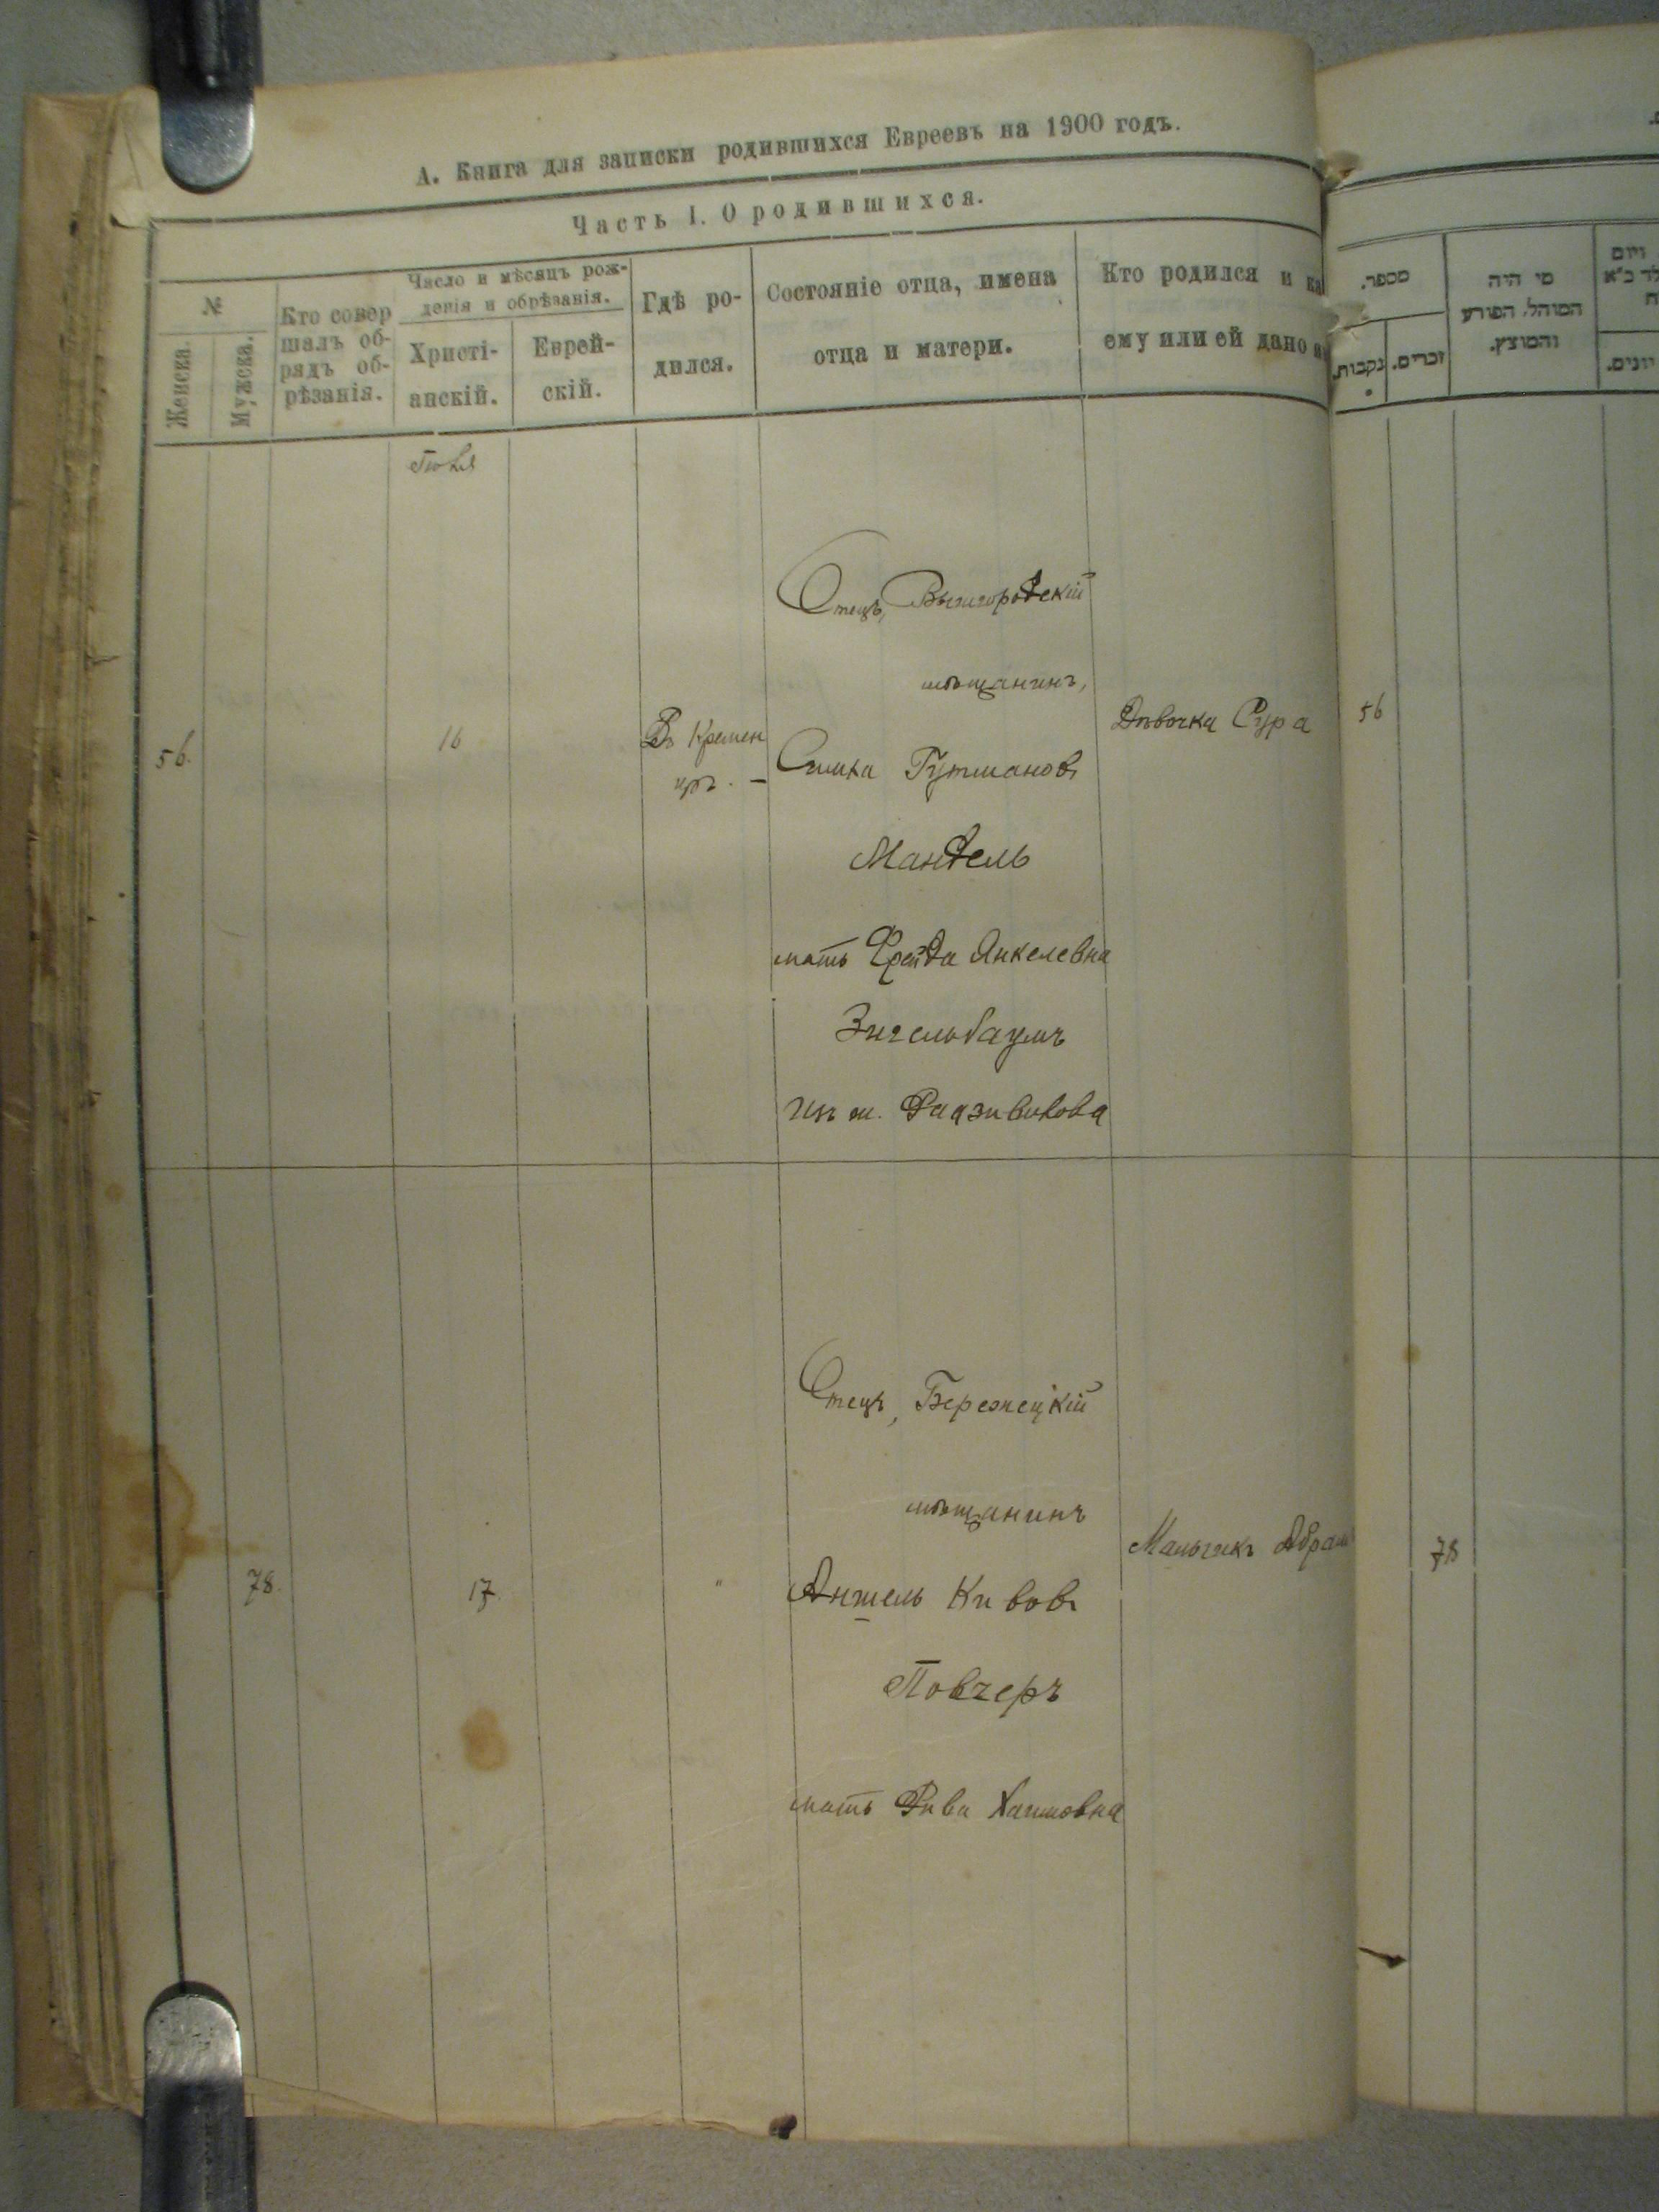 А. Книга для записки родившихся Евреевъ на 1900 годъ.
Часть I. О родившихся.
№
Женска.
Мужска.
Кто совер
шалъ об-
рядъ об-
рѣзанія.
Число и мѣсяцъ рож-
денія и обрѣзанія.
Христі-
анскій.
Еврей-
скій.
Гдѣ ро-
дился.
Состояніе отца, имена
отца и матери.
Кто родился и ка
ему или ей дано
מספר.
נקבות.
זכרים.
מי היה
המוהל, הפורע
והמוצץ.
ויום
יונים.
Іюля
56.
16
Въ Кремен
цѣ. –
Отецъ, Вышгородскій
мѣщанинъ,
Симха Гутмановъ
Мандель
мать Фрейда Янкелевна
Энгельбаумъ
изъ м. Радзивилова
Дѣвочка Сура
56
78.
17
"
Отецъ, Бережецкій
мѣщанинъ
Аншель Кивовъ
Повзеръ
мать Рива Хаимовна
Мальчикъ Абрам
78